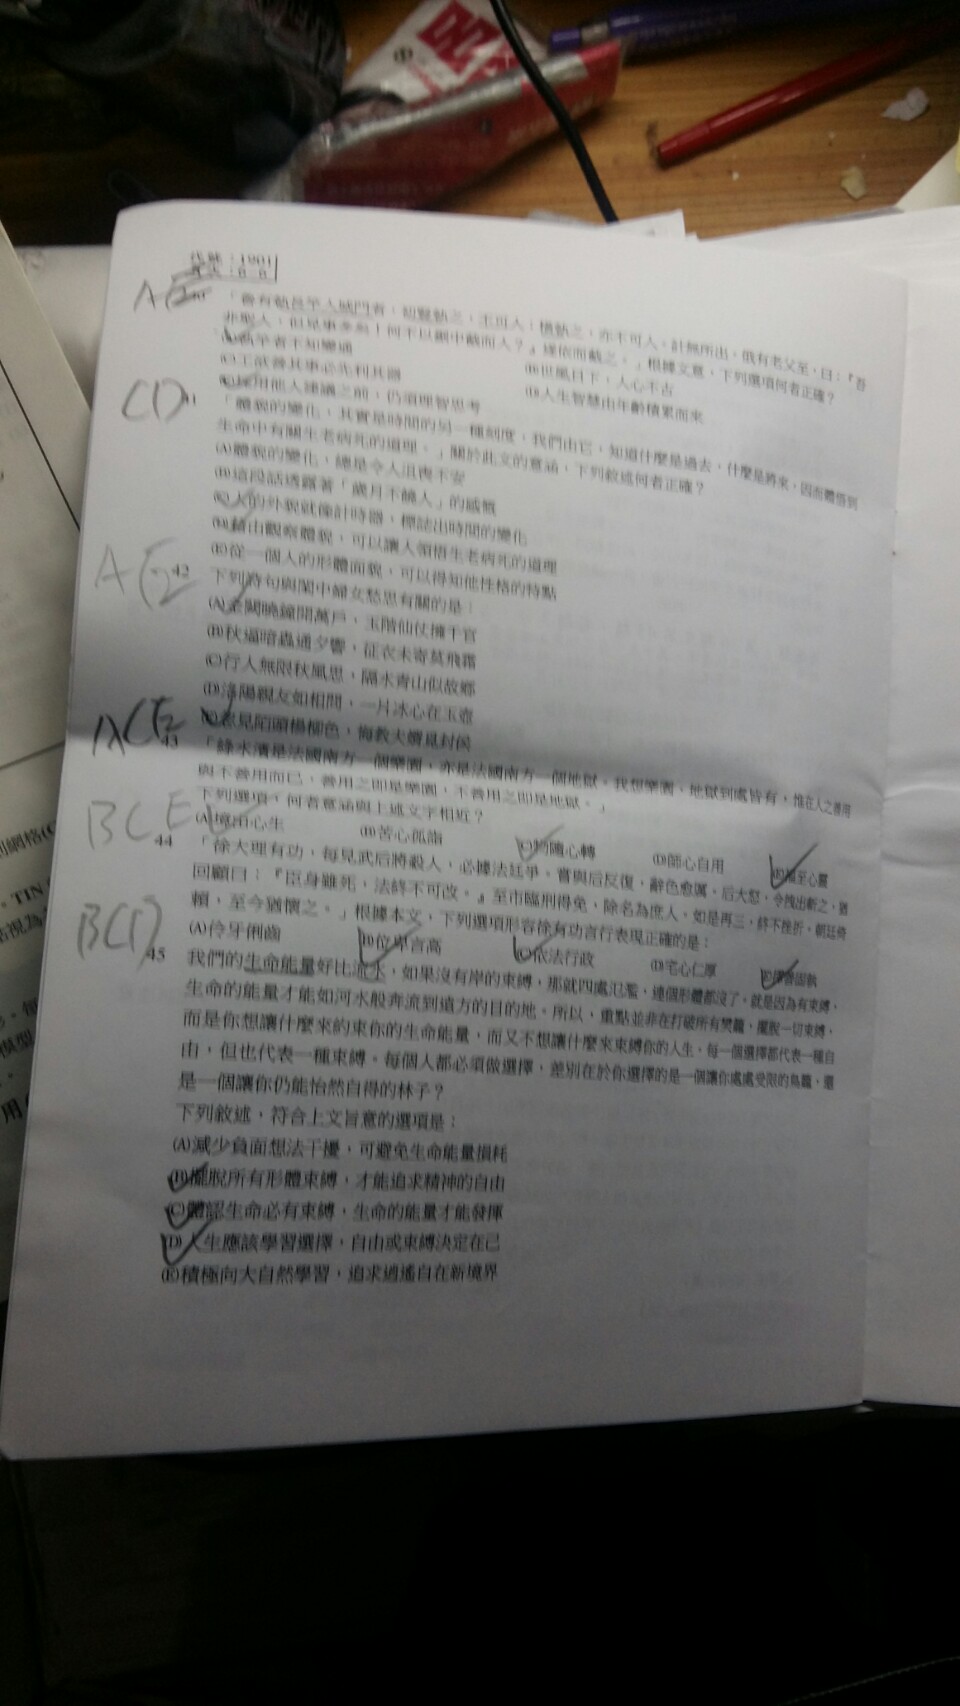 代號：1901
頁次：8－8
AE
「魯有執長竿入城門者，初豎執之，不可入；橫執之，亦不可入。計無所出。俄有老父至，曰：『吾
非聖人，但見事多矣！何不以鋸中截而入？』遂依而截之。」根據文意，下列選項何者正確？
執竿者不知變通
(B)世風日下，人心不古
(C)工欲善其事必先利其器
(D)人生智慧由年齡積累而來
採用他人建議之前，仍須理智思考
CD
41
「體貌的變化，其實是時間的另一種刻度，我們由它，知道什麼是過去，什麼是將來，因而體悟到
生命中有關生老病死的道理。」關於此文的意涵，下列敘述何者正確？
(A)體貌的變化，總是令人沮喪不安
(B)這段話透露著「歲月不饒人」的感慨
(C)人的外貌就像計時器，標誌出時間的變化
(D)藉由觀察體貌，可以讓人領悟生老病死的道理
(E)從一個人的形體面貌，可以得知他性格的特點
AE
42
下列詩句與閨中婦女愁思有關的是：
(A)金闕曉鐘開萬戶，玉階仙仗擁千官
(B)秋逼暗蟲通夕響，征衣未寄莫飛霜
(C)行人無限秋風思，隔水青山似故鄉
(D)洛陽親友如相問，一片冰心在玉壺
(E)忽見陌頭楊柳色，悔教夫婿覓封侯
ACE
43
「綠水濱是法國南方一個樂園，亦是法國南方一個地獄。我想樂園、地獄到處皆有，惟在人之善用
與不善用而已，善用之即是樂園，不善用之即是地獄。」
下列選項，何者意涵與上述文字相近？
(A)境由心生
(B)苦心孤詣
(C)物隨心轉
(D)師心自用
(E)福至心靈
BCE
44
「徐大理有功，每見武后將殺人，必據法廷爭。嘗與后反復，辭色愈厲，后大怒，令拽出斬之，猶
回顧曰：『臣身雖死，法終不可改。』至市臨刑得免，除名為庶人。如是再三，終不挫折，朝廷倚
賴，至今猶懷之。」根據本文，下列選項形容徐有功言行表現正確的是：
(A)伶牙俐齒
(B)位卑言高
(C)依法行政
(D)宅心仁厚
(E)擇善固執
BCD
45
我們的生命能量好比流水，如果沒有岸的束縛，那就四處氾濫，連個形體都沒了。就是因為有束縛，
生命的能量才能如河水般奔流到遠方的目的地。所以，重點並非在打破所有樊籠，擺脫一切束縛，
而是你想讓什麼來約束你的生命能量，而又不想讓什麼來束縛你的人生，每一個選擇都代表一種自
由，但也代表一種束縛。每個人都必須做選擇，差別在於你選擇的是一個讓你處處受限的鳥籠，還
是一個讓你仍能怡然自得的林子？
下列敘述，符合上文旨意的選項是：
(A)減少負面想法干擾，可避免生命能量損耗
(B)擺脫所有形體束縛，才能追求精神的自由
(C)體認生命必有束縛，生命的能量才能發揮
(D)人生應該學習選擇，自由或束縛決定在己
(E)積極向大自然學習，追求逍遙自在新境界